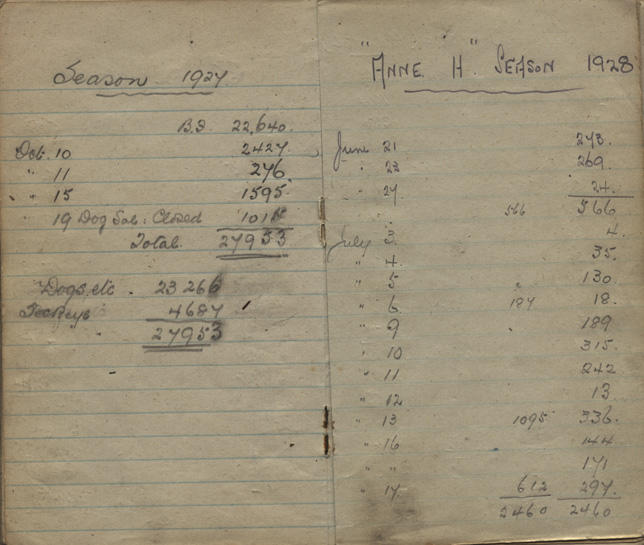 Season 1927
B.F. 22,640.
Oct. 10 2427
" 11 276
" 15 1595
" 19 Dog Sal: Closed 1015
Total. 27953
Dogs, etc. 23 266
Sockeys 4687
27953
"ANNE H" SEASON 1928
June 21 273.
" 22 269.
" 27 24.
566 566
July 3. 4.
" 4. 35.
" 5 " 130
" 6 187 18.
" 9 " 189
" 10 315.
" 11 242
" 12 13
" 13 1095 336.
" 16 144
" " 171
" 17 612 297.
2460 2460